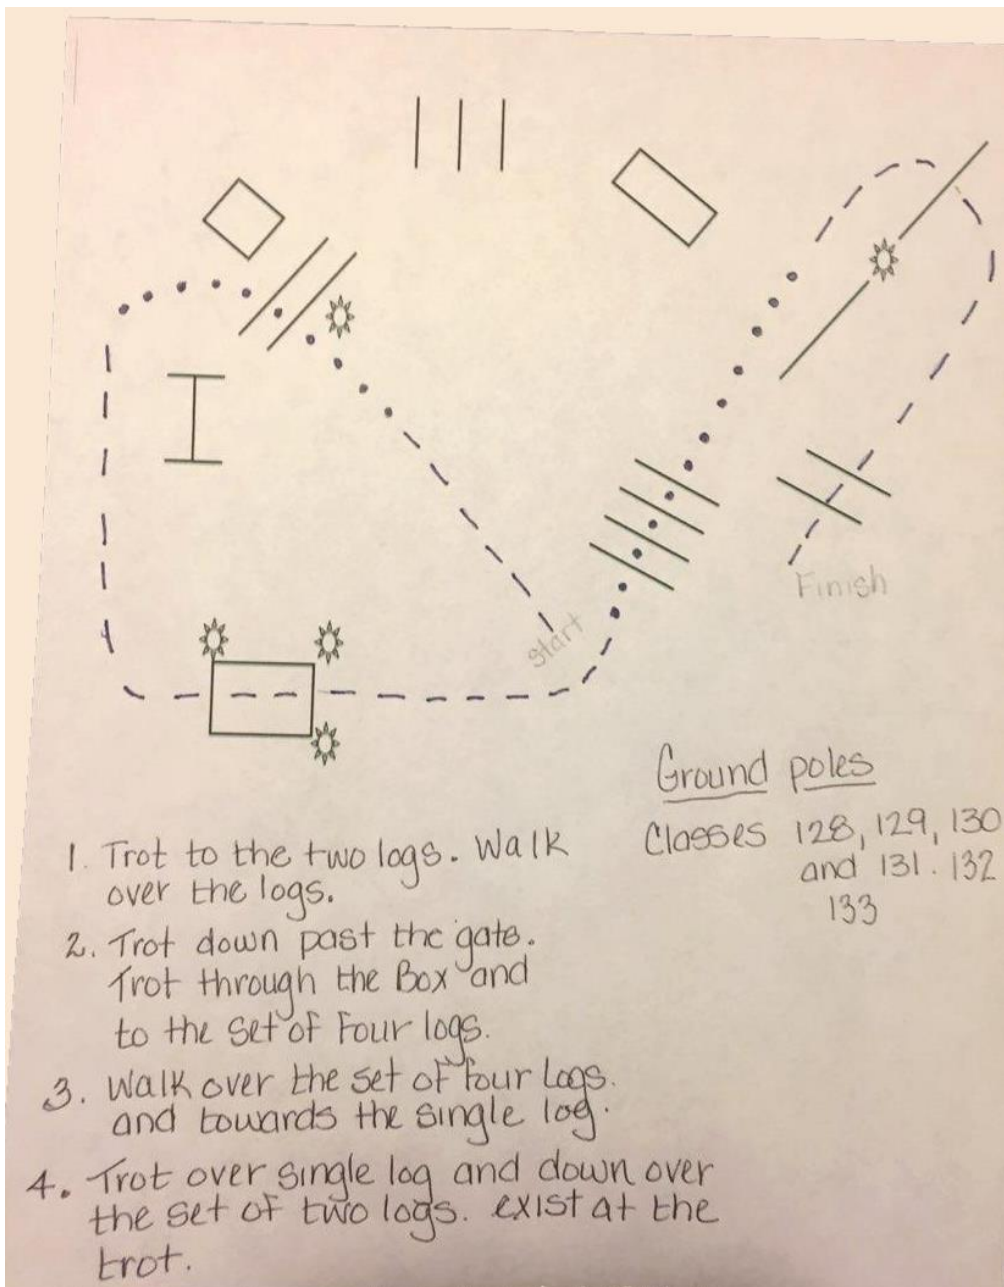 Start
Finish
Ground poles
Classes 128, 129, 130
and 131. 132
133
1. Trot to the two logs. Walk
over the logs.
2. Trot down past the gate.
Trot through the Box and
to the set of Four logs.
3. Walk over the set of four Logs.
and towards the single log.
4. Trot over single log and down over
the set of two logs. exist at the
trot.